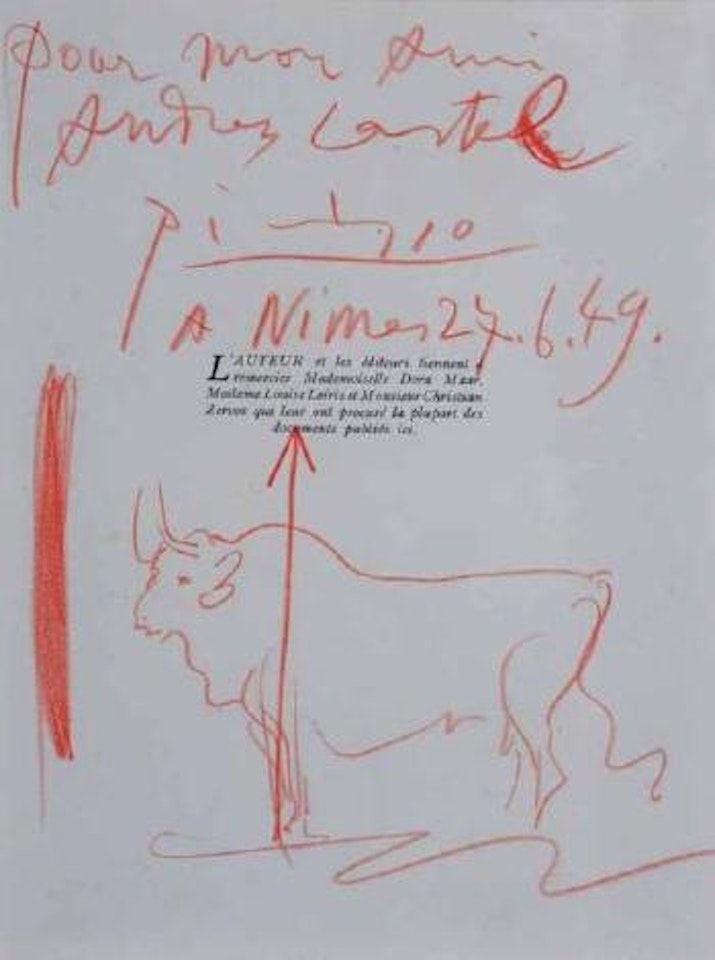 Pour mon Ami
Andres Castel
Picasso
A Nimes 27.6.49.
L'AUTEUR et les éditeurs tiennent à
remercier Mademoiselle Dora Maar,
Madame Louise Leiris et Monsieur Christian
Zervos qui leur ont procuré la plupart des
documents publiés ici.